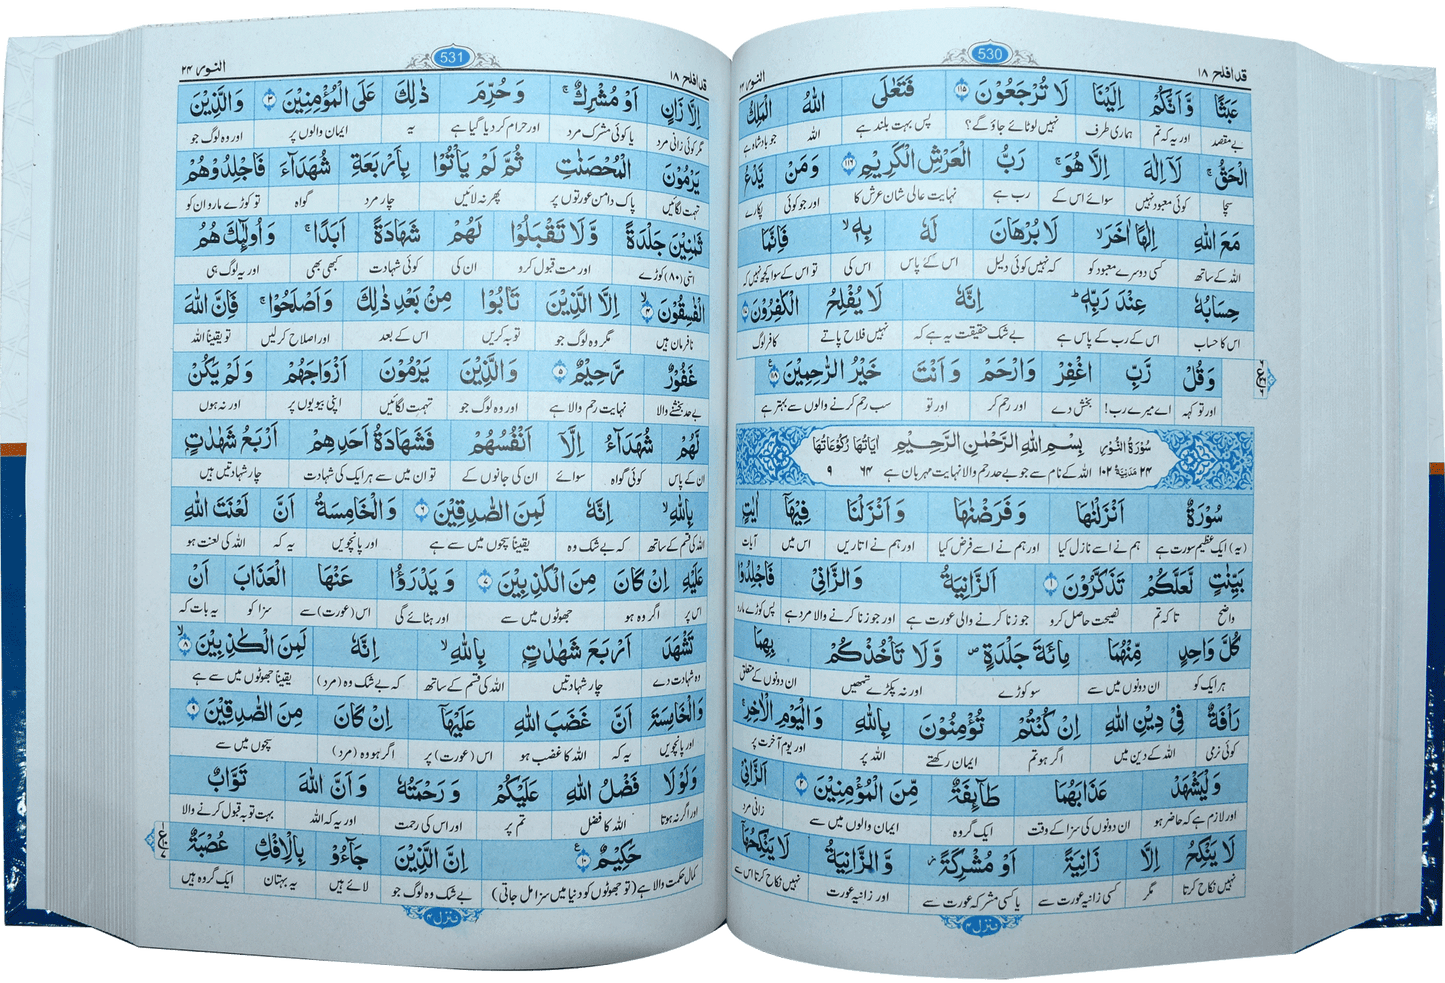 قد افلح ١٨
530
النور ٢٤
عَبَثًا وَّ اَنَّكُمْ اِلَيْنَا لَا تُرْجَعُوْنَ ١١٥ فَتَعٰلَى اللّٰهُ الْمَلِكُ
بے مقصد اور یہ کہ تم ہماری طرف نہیں لوٹائے جاؤ گے؟ پس بہت بلند ہے اللہ جو بادشاہ ہے
الْحَقُّ ۚ لَاۤ اِلٰهَ اِلَّا هُوَ ۚ رَبُّ الْعَرْشِ الْكَرِيْمِ ١١٦ وَمَنْ يَّدْعُ
سچا کوئی معبود نہیں سوائے اس کے رب ہے نہایت عالی شان عرش کا اور جو کوئی پکارے
مَعَ اللّٰهِ اِلٰهًا اٰخَرَ ۙ لَا بُرْهَانَ لَهٗ بِهٖ ۙ فَاِنَّمَا
اللہ کے ساتھ کسی دوسرے معبود کو کہ نہیں کوئی دلیل اس کے پاس اس کی تو اس کے سوا کچھ نہیں کہ
حِسَابُهٗ عِنْدَ رَبِّهٖ ؕ اِنَّهٗ لَا يُفْلِحُ الْكٰفِرُوْنَ
اس کا حساب اس کے رب کے پاس ہے بے شک حقیقت یہ ہے کہ نہیں فلاح پاتے کافر لوگ
وَ قُلْ رَّبِّ اغْفِرْ وَارْحَمْ وَ اَنْتَ خَيْرُ الرّٰحِمِيْنَ ١١٨
اور تو کہہ اے میرے رب! بخش دے اور رحم کر اور تو سب رحم کرنے والوں سے بہتر ہے
سُوْرَةُ النُّوْرِ بِسْمِ اللّٰهِ الرَّحْمٰنِ الرَّحِيْمِ اٰيَاتُهَا رُكُوْعَاتُهَا
٢٤ مَدَنِيَّةٌ ١٠٢ اللہ کے نام سے جو بے حد رحم والا نہایت مہربان ہے ٦٤ ٩
سُوْرَةٌ اَنْزَلْنٰهَا وَ فَرَضْنٰهَا وَ اَنْزَلْنَا فِيْهَاۤ اٰيٰتٍۭ
(یہ) ایک عظیم سورت ہے ہم نے اسے نازل کیا اور ہم نے اسے فرض کیا اور ہم نے اتاریں اس میں آیات
بَيِّنٰتٍ لَّعَلَّكُمْ تَذَكَّرُوْنَ ١ اَلزَّانِيَةُ وَالزَّانِيْ فَاجْلِدُوْا
واضح تا کہ تم نصیحت حاصل کرو جو زنا کرنے والی عورت ہے اور جو زنا کرنے والا مرد ہے پس کوڑے مارو
كُلَّ وَاحِدٍ مِّنْهُمَا مِائَةَ جَلْدَةٍ ۪ وَّ لَا تَاْخُذْكُمْ بِهِمَا
ہر ایک کو ان دونوں میں سے سو کوڑے اور نہ پکڑے تمھیں ان دونوں کے متعلق
رَاْفَةٌ فِيْ دِيْنِ اللّٰهِ اِنْ كُنْتُمْ تُؤْمِنُوْنَ بِاللّٰهِ وَالْيَوْمِ الْاٰخِرِ ۚ
کوئی نرمی اللہ کے دین میں اگر ہو تم ایمان رکھتے اللہ پر اور یوم آخرت پر
وَلْيَشْهَدْ عَذَابَهُمَا طَآئِفَةٌ مِّنَ الْمُؤْمِنِيْنَ ٢ اَلزَّانِيْ
اور لازم ہے کہ حاضر ہو ان دونوں کی سزا کے وقت ایک گروہ ایمان والوں میں سے زانی مرد
لَا يَنْكِحُ اِلَّا زَانِيَةً اَوْ مُشْرِكَةً ۫ وَّ الزَّانِيَةُ لَا يَنْكِحُهَاۤ
نہیں نکاح کرتا مگر کسی زانیہ عورت سے یا کسی مشرکہ عورت سے اور زانیہ عورت نہیں نکاح کرتا اس سے
منزل ٤
قد افلح ١٨
531
النور ٢٤
اِلَّا زَانٍ اَوْ مُشْرِكٌ ۚ وَ حُرِّمَ ذٰلِكَ عَلَى الْمُؤْمِنِيْنَ ٣ وَالَّذِيْنَ
مگر کوئی زانی مرد یا کوئی مشرک مرد اور حرام کر دیا گیا ہے یہ ایمان والوں پر اور وہ لوگ جو
يَرْمُوْنَ الْمُحْصَنٰتِ ثُمَّ لَمْ يَاْتُوْا بِاَرْبَعَةِ شُهَدَآءَ فَاجْلِدُوْهُمْ
تہمت لگائیں پاک دامن عورتوں پر پھر نہ لائیں چار مرد گواہ تو کوڑے مارو ان کو
ثَمٰنِيْنَ جَلْدَةً وَّ لَا تَقْبَلُوْا لَهُمْ شَهَادَةً اَبَدًا ۚ وَ اُولٰٓئِكَ هُمُ
اسّی (٨٠) کوڑے اور مت قبول کرو ان کی کوئی شہادت کبھی بھی اور یہ لوگ ہی
الْفٰسِقُوْنَ ٤ اِلَّا الَّذِيْنَ تَابُوْا مِنْۢ بَعْدِ ذٰلِكَ وَ اَصْلَحُوْا ۚ فَاِنَّ اللّٰهَ
نافرمان ہیں مگر وہ لوگ جو توبہ کریں اس کے بعد اور اصلاح کر لیں تو یقیناً اللہ
غَفُوْرٌ رَّحِيْمٌ ٥ وَ الَّذِيْنَ يَرْمُوْنَ اَزْوَاجَهُمْ وَ لَمْ يَكُنْ
بے حد بخشنے والا نہایت رحم والا ہے اور وہ لوگ جو تہمت لگائیں اپنی بیویوں پر اور نہ ہوں
لَّهُمْ شُهَدَآءُ اِلَّاۤ اَنْفُسُهُمْ فَشَهَادَةُ اَحَدِهِمْ اَرْبَعُ شَهٰدٰتٍۭ
ان کے پاس کوئی گواہ سوائے ان کی جانوں کے تو ان میں سے ہر ایک کی شہادت چار شہادتیں ہیں
بِاللّٰهِ ۙ اِنَّهٗ لَمِنَ الصّٰدِقِيْنَ ٦ وَ الْخَامِسَةُ اَنَّ لَعْنَتَ اللّٰهِ
اللہ کی قسم کے ساتھ کہ بے شک وہ یقیناً سچوں میں سے ہے اور پانچویں یہ کہ اللہ کی لعنت ہو
عَلَيْهِ اِنْ كَانَ مِنَ الْكٰذِبِيْنَ ٧ وَ يَدْرَؤُا عَنْهَا الْعَذَابَ اَنْ
اس پر اگر وہ ہو جھوٹوں میں سے اور ہٹائے گی اس (عورت) سے سزا کو یہ بات کہ
تَشْهَدَ اَرْبَعَ شَهٰدٰتٍۭ بِاللّٰهِ ۙ اِنَّهٗ لَمِنَ الْكٰذِبِيْنَ ٨
وہ شہادت دے چار شہادتیں اللہ کی قسم کے ساتھ کہ بے شک وہ (مرد) یقیناً جھوٹوں میں سے ہے
وَالْخَامِسَةَ اَنَّ غَضَبَ اللّٰهِ عَلَيْهَاۤ اِنْ كَانَ مِنَ الصّٰدِقِيْنَ ٩
اور پانچویں یہ کہ اللہ کا غضب ہو اس (عورت) پر اگر ہو وہ (مرد) سچوں میں سے
وَلَوْ لَا فَضْلُ اللّٰهِ عَلَيْكُمْ وَ رَحْمَتُهٗ وَ اَنَّ اللّٰهَ تَوَّابٌ
اور اگر نہ ہوتا اللہ کا فضل تم پر اور اس کی رحمت اور یہ کہ اللہ بہت توبہ قبول کرنے والا
حَكِيْمٌ ١٠ اِنَّ الَّذِيْنَ جَآءُوْ بِالْاِفْكِ عُصْبَةٌ
کمال حکمت والا ہے (تو جھوٹوں کو دنیا میں سزا مل جاتی) بے شک وہ لوگ جو لائے ہیں یہ بہتان ایک گروہ ہیں
منزل ٤